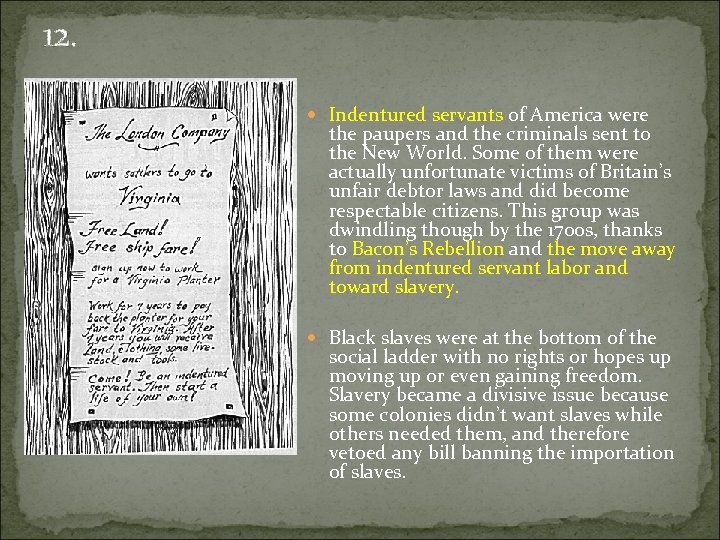 12.
The London Company
wants settlers to go to
Virginia
Free Land!
Free ship fare!
Sign up now to work
for a Virginia Planter
Work for 7 years to pay
back the planter for your
fare to Virginia. After
7 years you will receive
Land, clothing, some live-
stock and tools.
Come! Be an indentured
servant. Then start a
life of your own!
• Indentured servants of America were
the paupers and the criminals sent to
the New World. Some of them were
actually unfortunate victims of Britain’s
unfair debtor laws and did become
respectable citizens. This group was
dwindling though by the 1700s, thanks
to Bacon’s Rebellion and the move away
from indentured servant labor and
toward slavery.
• Black slaves were at the bottom of the
social ladder with no rights or hopes up
moving up or even gaining freedom.
Slavery became a divisive issue because
some colonies didn’t want slaves while
others needed them, and therefore
vetoed any bill banning the importation
of slaves.